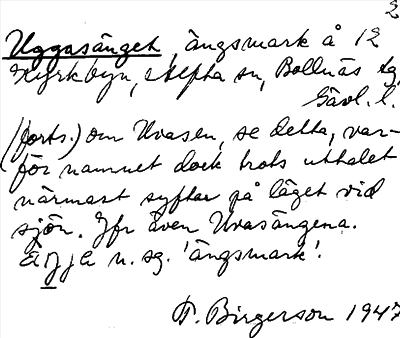 2
Uggasänget, ängsmark å 12
Kyrkbyn, Alfta sn, Bollnäs tg,
Gävl. l.
(forts.) om Uvasen, se detta, var-
för namnet dock trots uttalet
närmast syftar på läget vid
sjön. Jfr även Uvasängena.
n. sg. 'ängsmark'.
F. Birgerson 1947